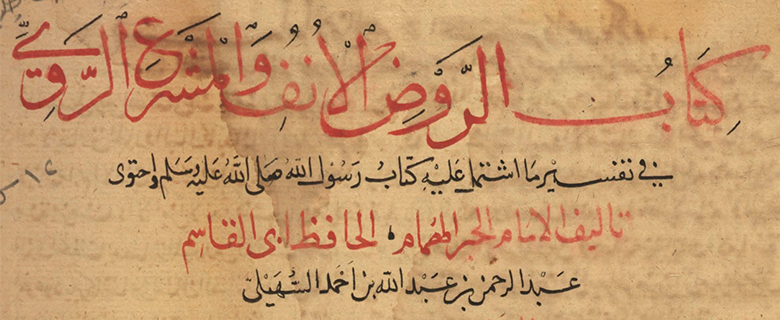 كِتَابُ الرَّوْضِ الْأُنُفِ وَالْمَشْرَعِ الرَّوِيِّ
في تفسير ما اشتمل عليه كتابُ رسول الله صلى الله عليه وسلم واحتوى
تاليف الامام الحبر الهمام، الحافظ ابى القاسم
عبد الرحمن بن عبد الله بن احمد السُّهَيْلىّ